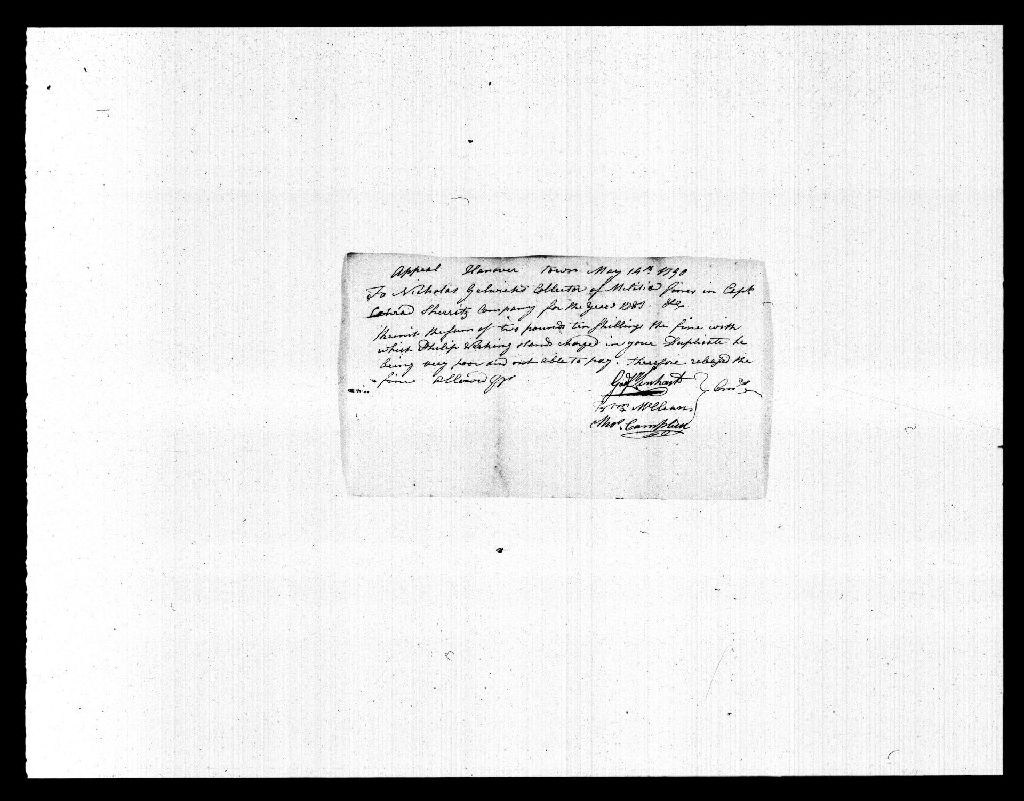 Appeal Hanover town May 14th 1790
To Nicholas Gelwicks Collector of Militia fines in Capt
Conrad Sherretz Company for the Year 178
the sum of two pounds ten Shillings the fine with
which Philip stands charged in your Duplicate he
being very poor and not able to pay. therefore releasd the
fine
Lenhart
Wm McClean
Thos. Campbell